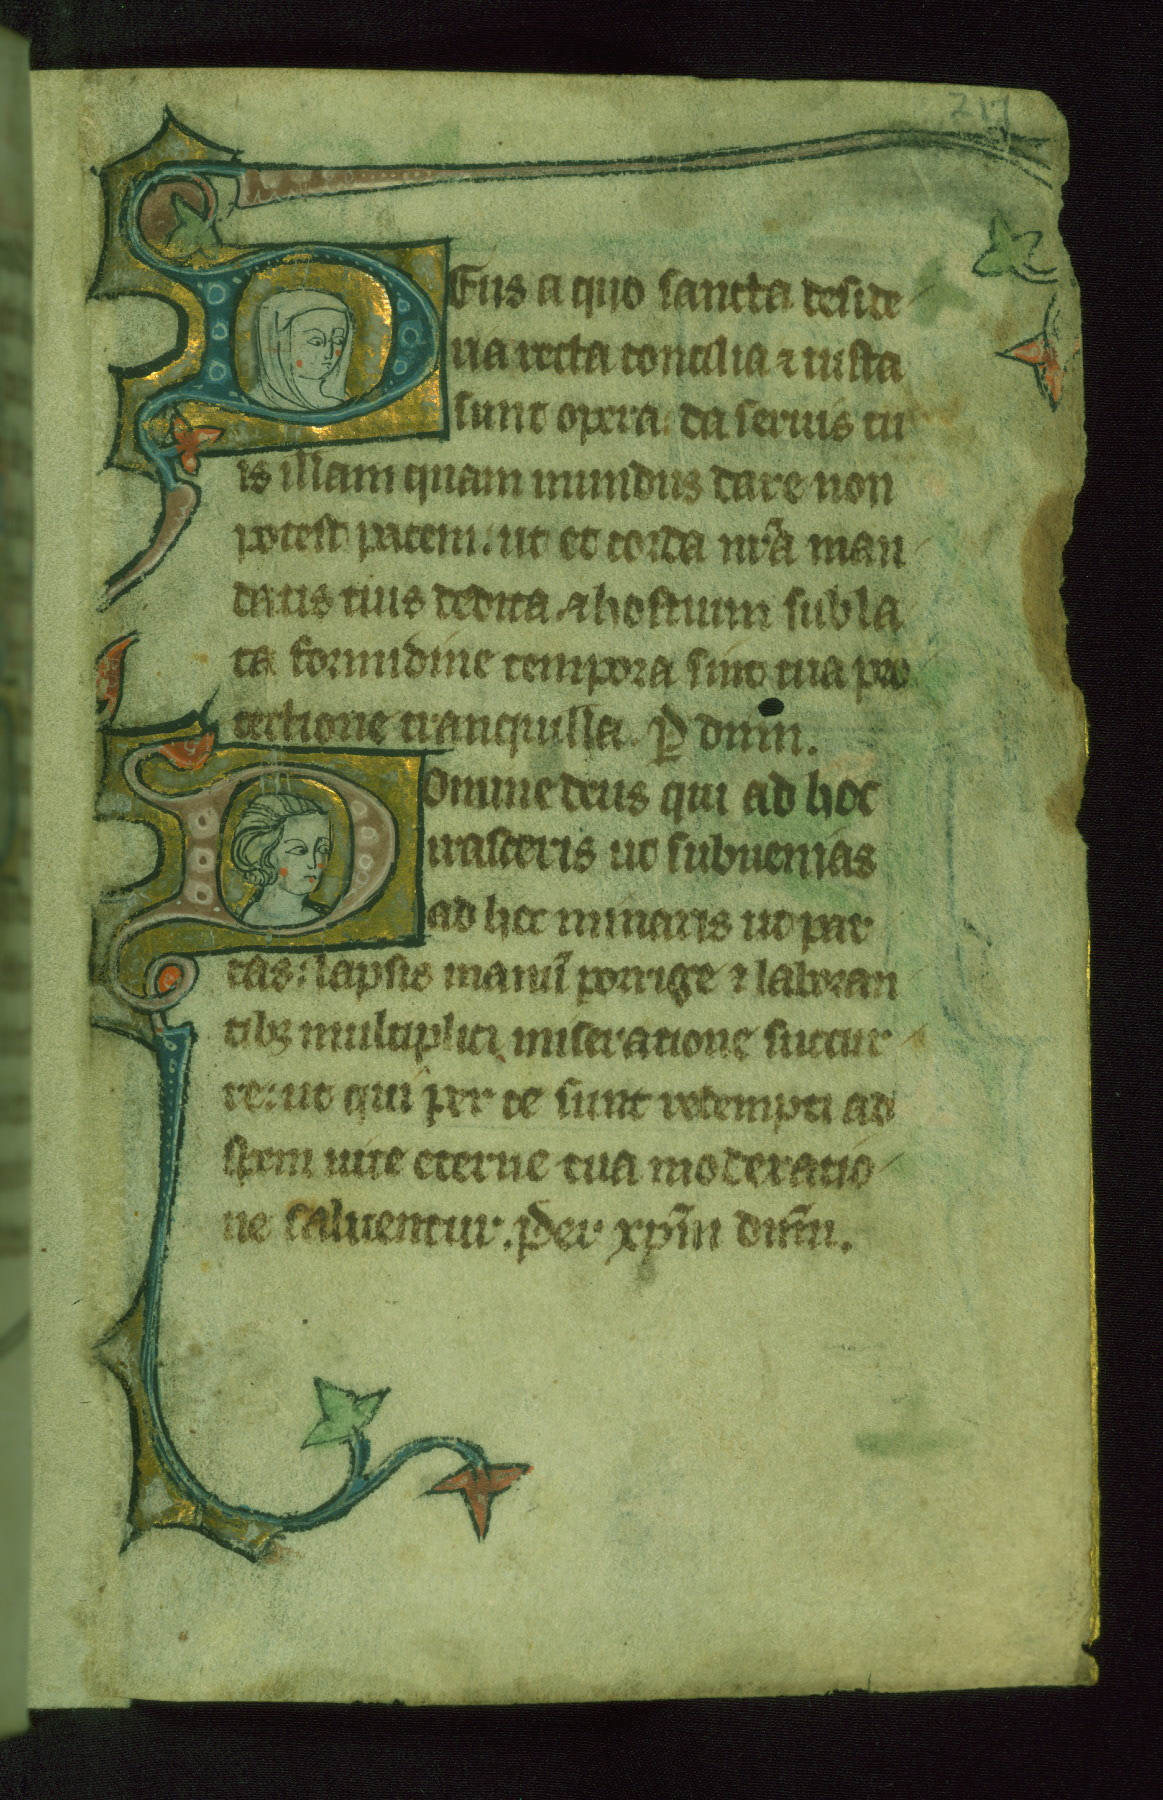 217
Deus a quo sancta deside
ria recta concilia ⁊ iusta
sunt opera. da seruis tu
is illam quam mundus dare non
potest pacem: ut et corda nr̃a man
datis tuis dedita ⁊ hostium subla
ta formidine tempora sint tua pro
tectione tranquilla. P̲ dñm.
Domine deus qui ad hoc
irasceris ut subuenias
ad hoc minaris ut par
cas: lapsis manũ porrige ⁊ laboran
tibꝫ multiplici miseratione succur
re: ut qui per te sunt redempti ad
spem uite eterne tua moderatio
ne saluentur. Per xp̃m dñm.